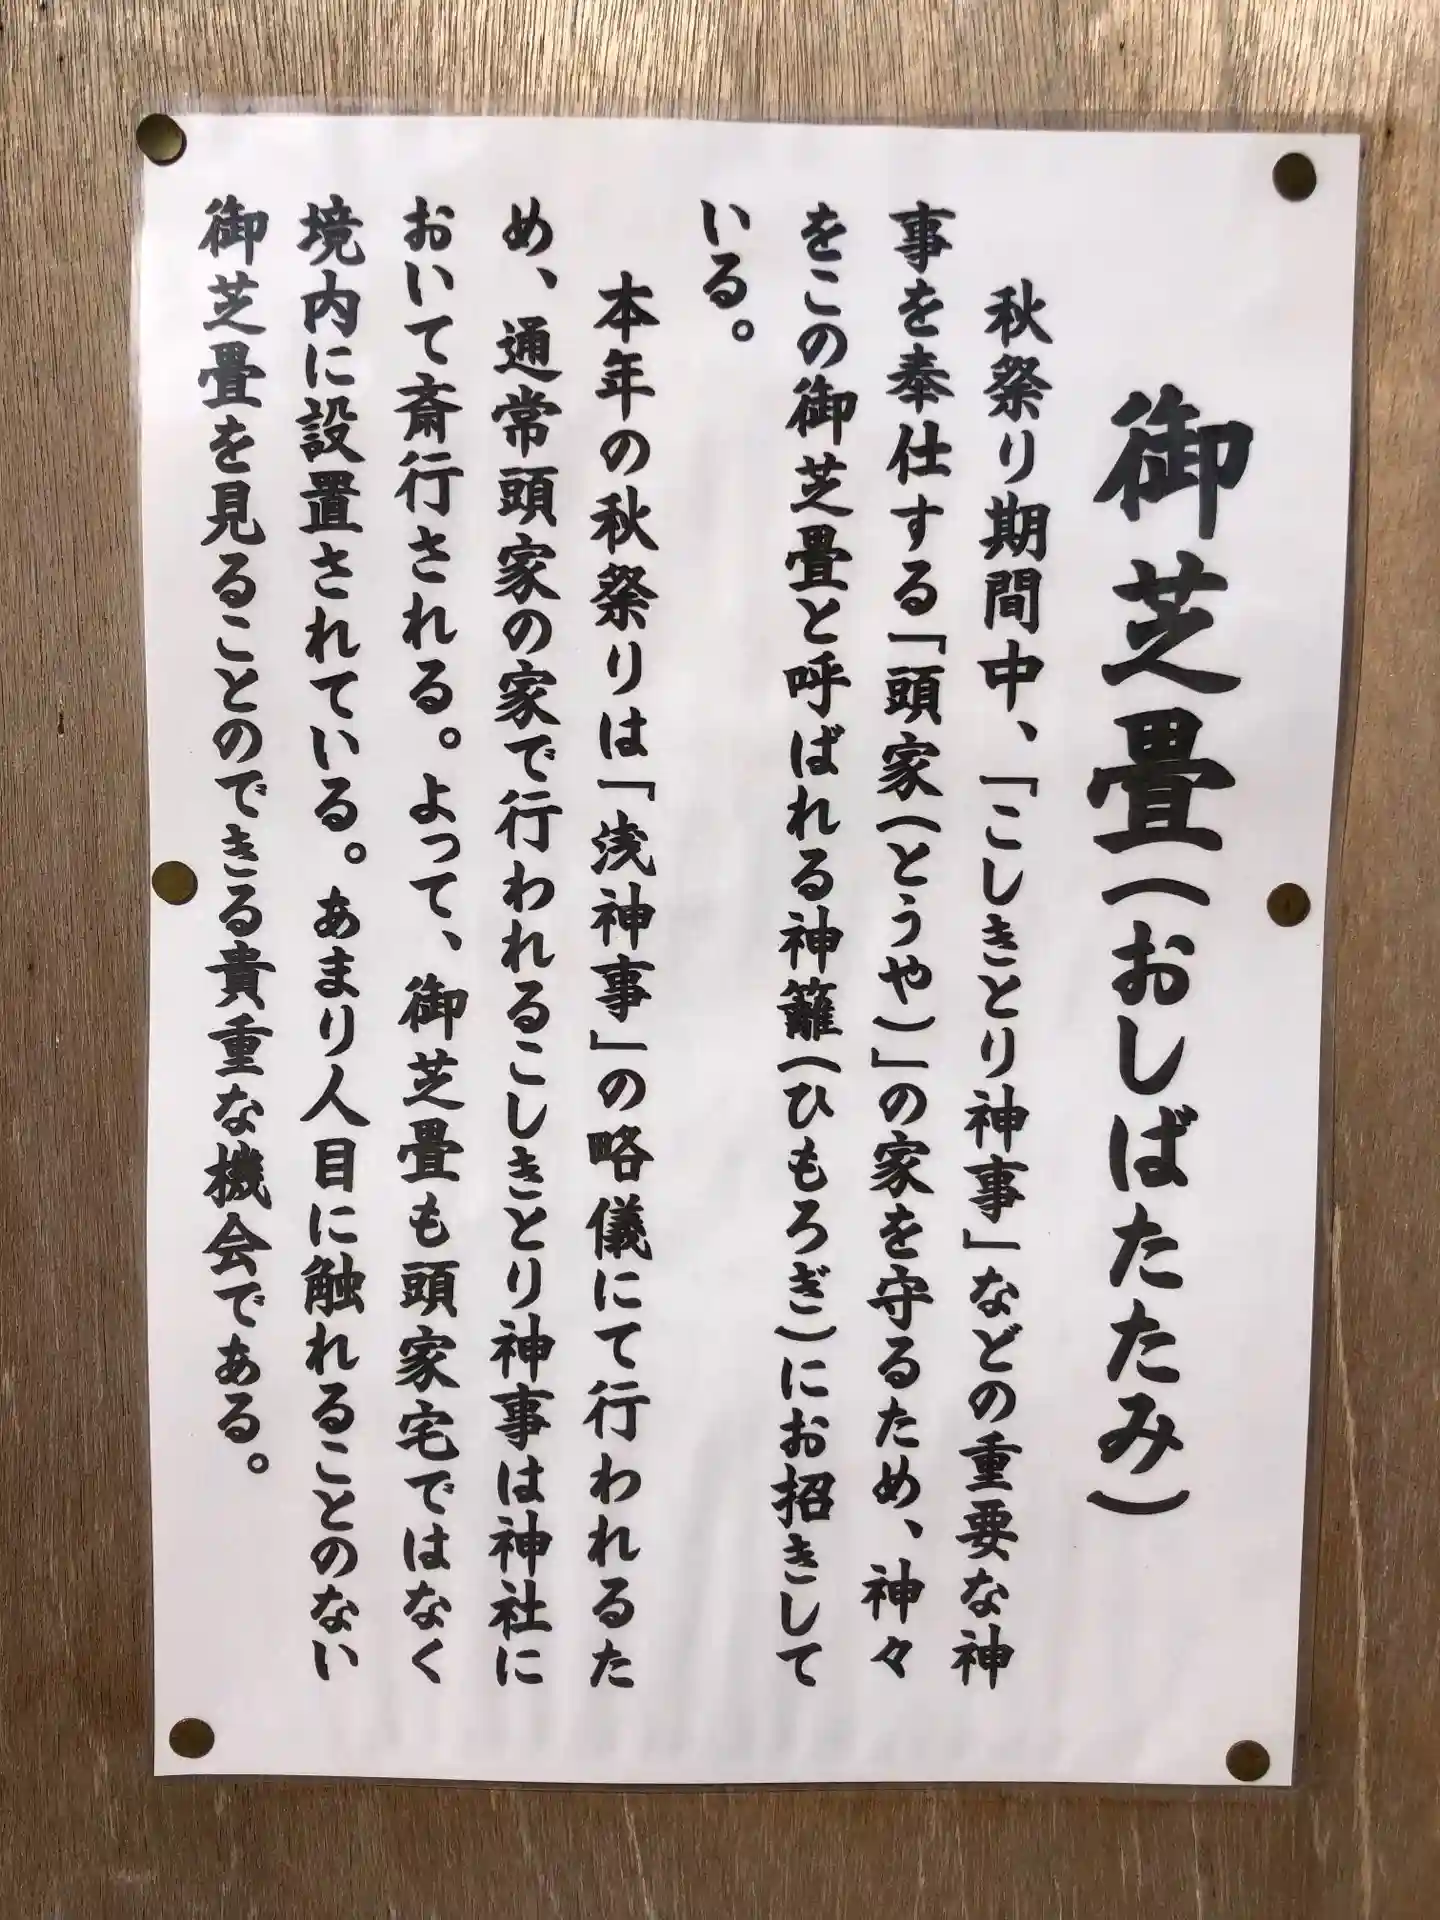 御芝畳（おしばたたみ）
秋祭り期間中、「こしきとり神事」などの重要な神
事を奉仕する「頭家（とうや）」の家を守るため、神々
をこの御芝畳と呼ばれる神籬（ひもろぎ）にお招きして
いる。
本年の秋祭りは「浅神事」の略儀にて行われるた
め、通常頭家の家で行われるこしきとり神事は神社に
おいて斎行される。よって、御芝畳も頭家宅ではなく
境内に設置されている。あまり人目に触れることのない
御芝畳を見ることのできる貴重な機会である。